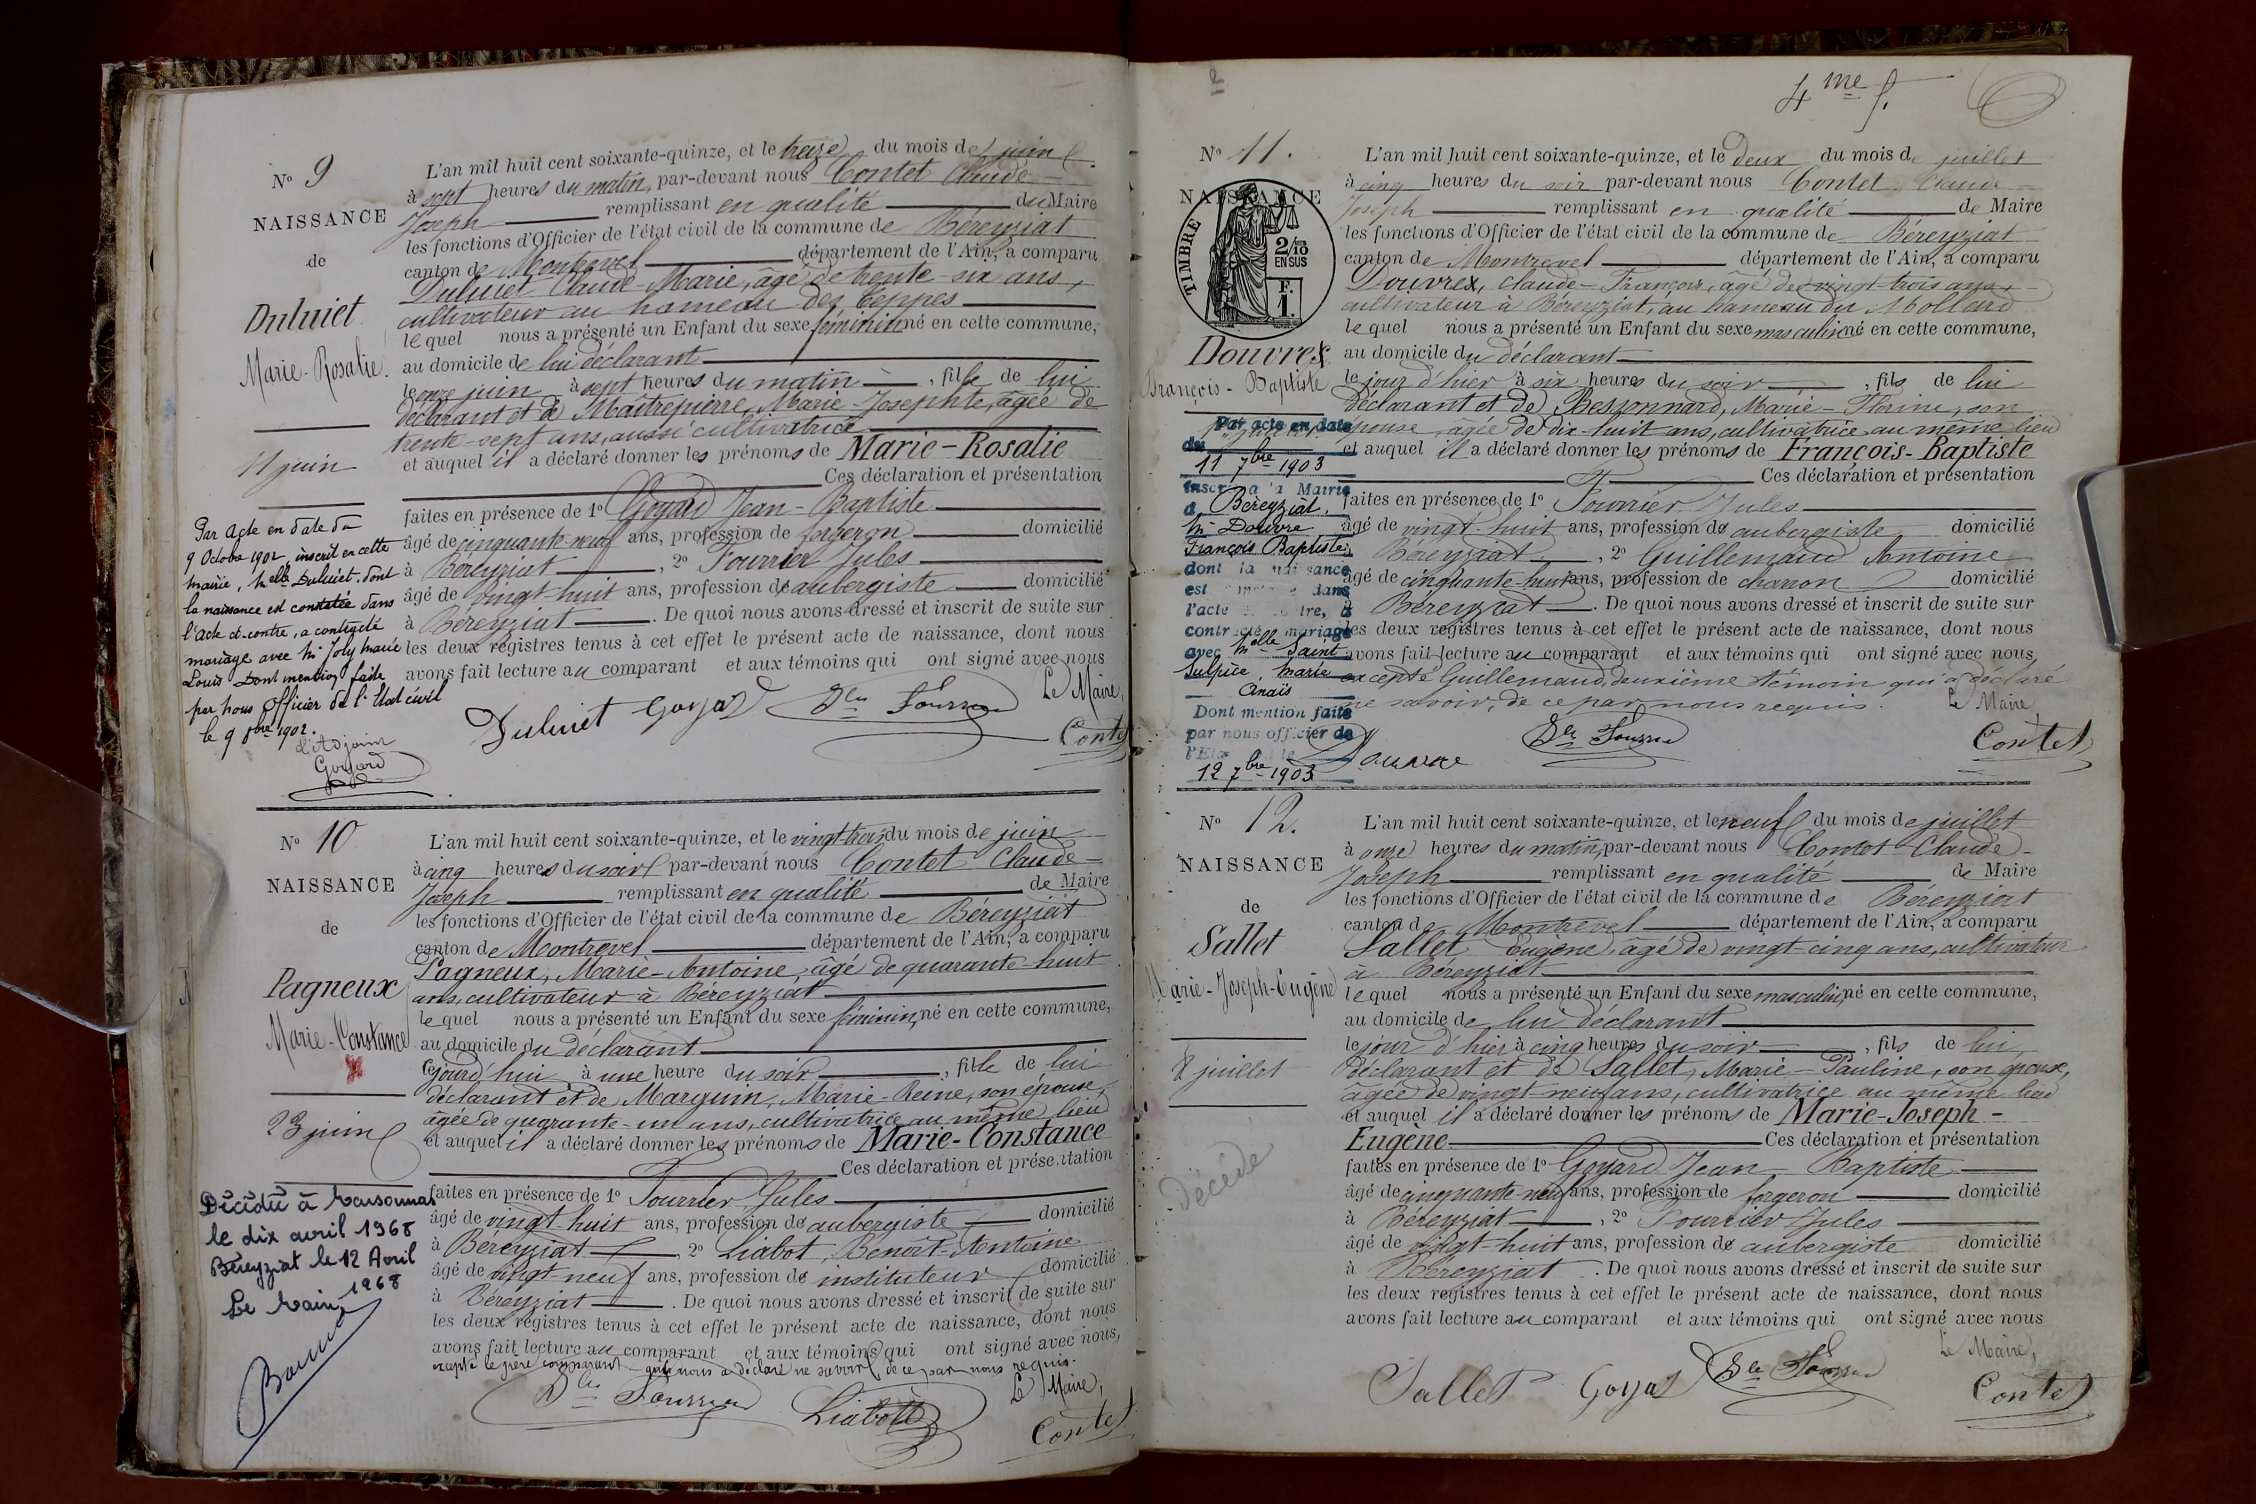 No 9
NAISSANCE
de
Duluiet
Marie-Rosalie.
11 juin
Par Acte en date du
9 Octobre 1902, inscrit en cette
mairie, Melle Duluiet, dont
la naissance est constatée dans
l'acte ci-contre, a contracté
mariage avec Mr Joly Marie
Louis Dont mention faite
par nous Officier de l'Etat civil
le 9 8bre 1902.
L'Adjoint
Goyard
L'an mil huit cent soixante-quinze, et le treize du mois de juin
à sept heures du matin, par-devant nous Contet Claude-
Joseph remplissant en qualité du Maire
les fonctions d'Officier de l'état civil de la commune de Béreyziat
canton de Montrevel département de l'Ain, a comparu
Duluiet Claude-Marie, âgé de trente-six ans,
cultivateur au hameau des Ceppes
lequel nous a présenté un Enfant du sexe féminin né en cette commune,
au domicile de lui déclarant
le onze juin à sept heures du matin, fille de lui
déclarant et de Maîtrepierre, Marie-Josephte, âgée de
trente-sept ans, aussi cultivatrice
et auquel il a déclaré donner les prénoms de Marie-Rosalie
Ces déclaration et présentation
faites en présence de 1o Goyard Jean-Baptiste
âgé de cinquante-neuf ans, profession de forgeron domicilié
à Béreyziat, 2o Fourrier Jules
âgé de vingt-huit ans, profession d'aubergiste domicilié
à Béreyziat. De quoi nous avons dressé et inscrit de suite sur
les deux registres tenus à cet effet le présent acte de naissance, dont nous
avons fait lecture au comparant et aux témoins qui ont signé avec nous
Le Maire,
Duluiet Goyard Jles Fourrier
Contet
No 10
NAISSANCE
de
Pagneux
Marie-Constance
23 juin
Décédée à Marsonnas
le dix avril 1968
Béreyziat le 12 Avril
1968
Le Maire
L'an mil huit cent soixante-quinze, et le vingt-trois du mois de juin
à cinq heures du soir par-devant nous Contet Claude-
Joseph remplissant en qualité de Maire
les fonctions d'Officier de l'état civil de la commune de Béreyziat
canton de Montrevel département de l'Ain, a comparu
Pagneux, Marie-Antoine, âgé de quarante-huit
ans, cultivateur à Béreyziat
lequel nous a présenté un Enfant du sexe féminin, né en cette commune,
au domicile du déclarant
cejourd'hui à une heure du soir, fille de lui
déclarant et de Marguin, Marie-Reine, son épouse,
âgée de quarante-un ans, cultivatrice au même lieu
et auquel il a déclaré donner les prénoms de Marie-Constance
Ces déclaration et présentation
faites en présence de 1o Fourrier Jules
âgé de vingt huit ans, profession d'aubergiste domicilié
à Béreyziat, 2o Liabot, Benoît-Antoine
âgé de vingt-neuf ans, profession d'instituteur domicilié
à Béreyziat. De quoi nous avons dressé et inscrit de suite sur
les deux registres tenus à cet effet le présent acte de naissance, dont nous
avons fait lecture au comparant et aux témoins qui ont signé avec nous,
excepté le père comparant qui nous a déclaré ne savoir de ce par nous requis.
Le Maire,
Jles Fourrier Liabot
Contet
4me f.
No 11.
NAISSANCE
TIMBRE
2/10
EN SUS
F.
1.
Douvrex
François-Baptiste
Par acte en date
du
11 7bre 1903
inscrit à la Mairie
d Béreyziat,
Mr Douvre
François Baptiste,
dont la naissance
est constatée dans
l'acte ci-contre, a
contracté mariage
avec Melle Saint
Sulpice, Marie
Anaïs
Dont mention faite
par nous officier de
l'Etat civil le
12 7bre 1903
L'an mil huit cent soixante-quinze, et le deux du mois de juillet
à cinq heures du soir par-devant nous Contet Claude-
Joseph remplissant en qualité de Maire
les fonctions d'Officier de l'état civil de la commune de Béreyziat
canton de Montrevel département de l'Ain, a comparu
Douvrex, Claude-François, âgé de vingt-trois ans,
cultivateur à Béreyziat, au hameau du Mollard
lequel nous a présenté un Enfant du sexe masculin né en cette commune,
au domicile du déclarant
le jour d'hier à six heures du soir, fils de lui
déclarant et de Bessonnard, Marie-Florine, son
épouse, âgée de dix-huit ans, cultivatrice au même lieu
et auquel il a déclaré donner les prénoms de François-Baptiste
Ces déclaration et présentation
faites en présence de 1o Fourrier Jules
âgé de vingt-huit ans, profession d'aubergiste domicilié
à Béreyziat, 2o Guillemaud Antoine
âgé de cinquante-huit ans, profession de charron domicilié
à Béreyziat. De quoi nous avons dressé et inscrit de suite sur
les deux registres tenus à cet effet le présent acte de naissance, dont nous
avons fait lecture au comparant et aux témoins qui ont signé avec nous,
excepté Guillemaud, deuxième témoin qui a déclaré
ne savoir, de ce par nous requis.
Le Maire,
Douvre Jles Fourrier
Contet
No 12.
NAISSANCE
de
Sallet
Marie-Joseph-Eugène
8 juillet
Décédé
L'an mil huit cent soixante-quinze, et le neuf du mois de juillet
à onze heures du matin, par-devant nous Contet Claude-
Joseph remplissant en qualité de Maire
les fonctions d'Officier de l'état civil de la commune de Béreyziat
canton de Montrevel département de l'Ain, a comparu
Sallet Eugène, âgé de vingt-cinq ans, cultivateur
à Béreyziat
lequel nous a présenté un Enfant du sexe masculin, né en cette commune,
au domicile de lui déclarant
le jour d'hier à cinq heures du soir, fils de lui
déclarant et de Sallet, Marie-Pauline, son épouse,
âgée de vingt-neuf ans, cultivatrice au même lieu
et auquel il a déclaré donner les prénoms de Marie-Joseph-
Eugène Ces déclaration et présentation
faites en présence de 1o Goyard Jean-Baptiste
âgé de cinquante-neuf ans, profession de forgeron domicilié
à Béreyziat, 2o Fourrier Jules
âgé de vingt-huit ans, profession d'aubergiste domicilié
à Béreyziat. De quoi nous avons dressé et inscrit de suite sur
les deux registres tenus à cet effet le présent acte de naissance, dont nous
avons fait lecture au comparant et aux témoins qui ont signé avec nous
Le Maire,
Sallet Goyard Jles Fourrier
Contet